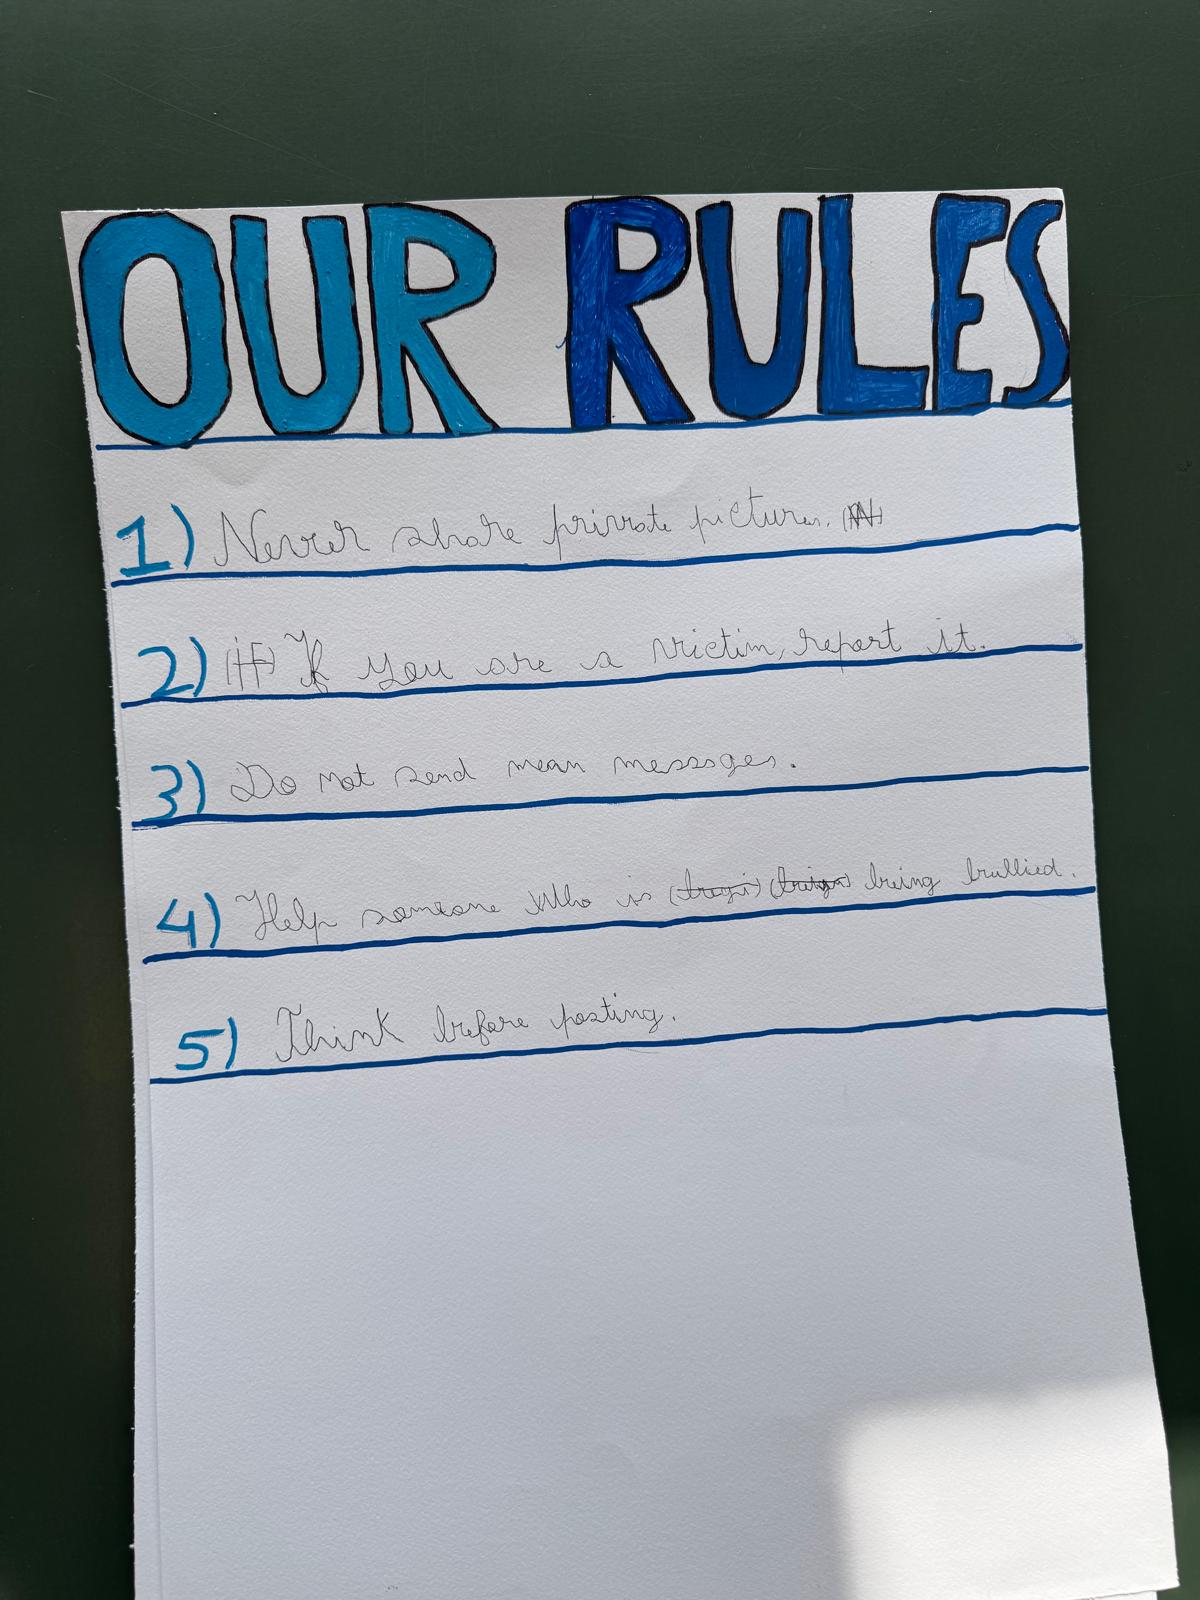 OUR RULES
1) Never share private pictures.
2) (if) If you are a victim, report it.
3) Do not send mean messages.
4) Help someone Who is being bullied.
5) Think before posting.